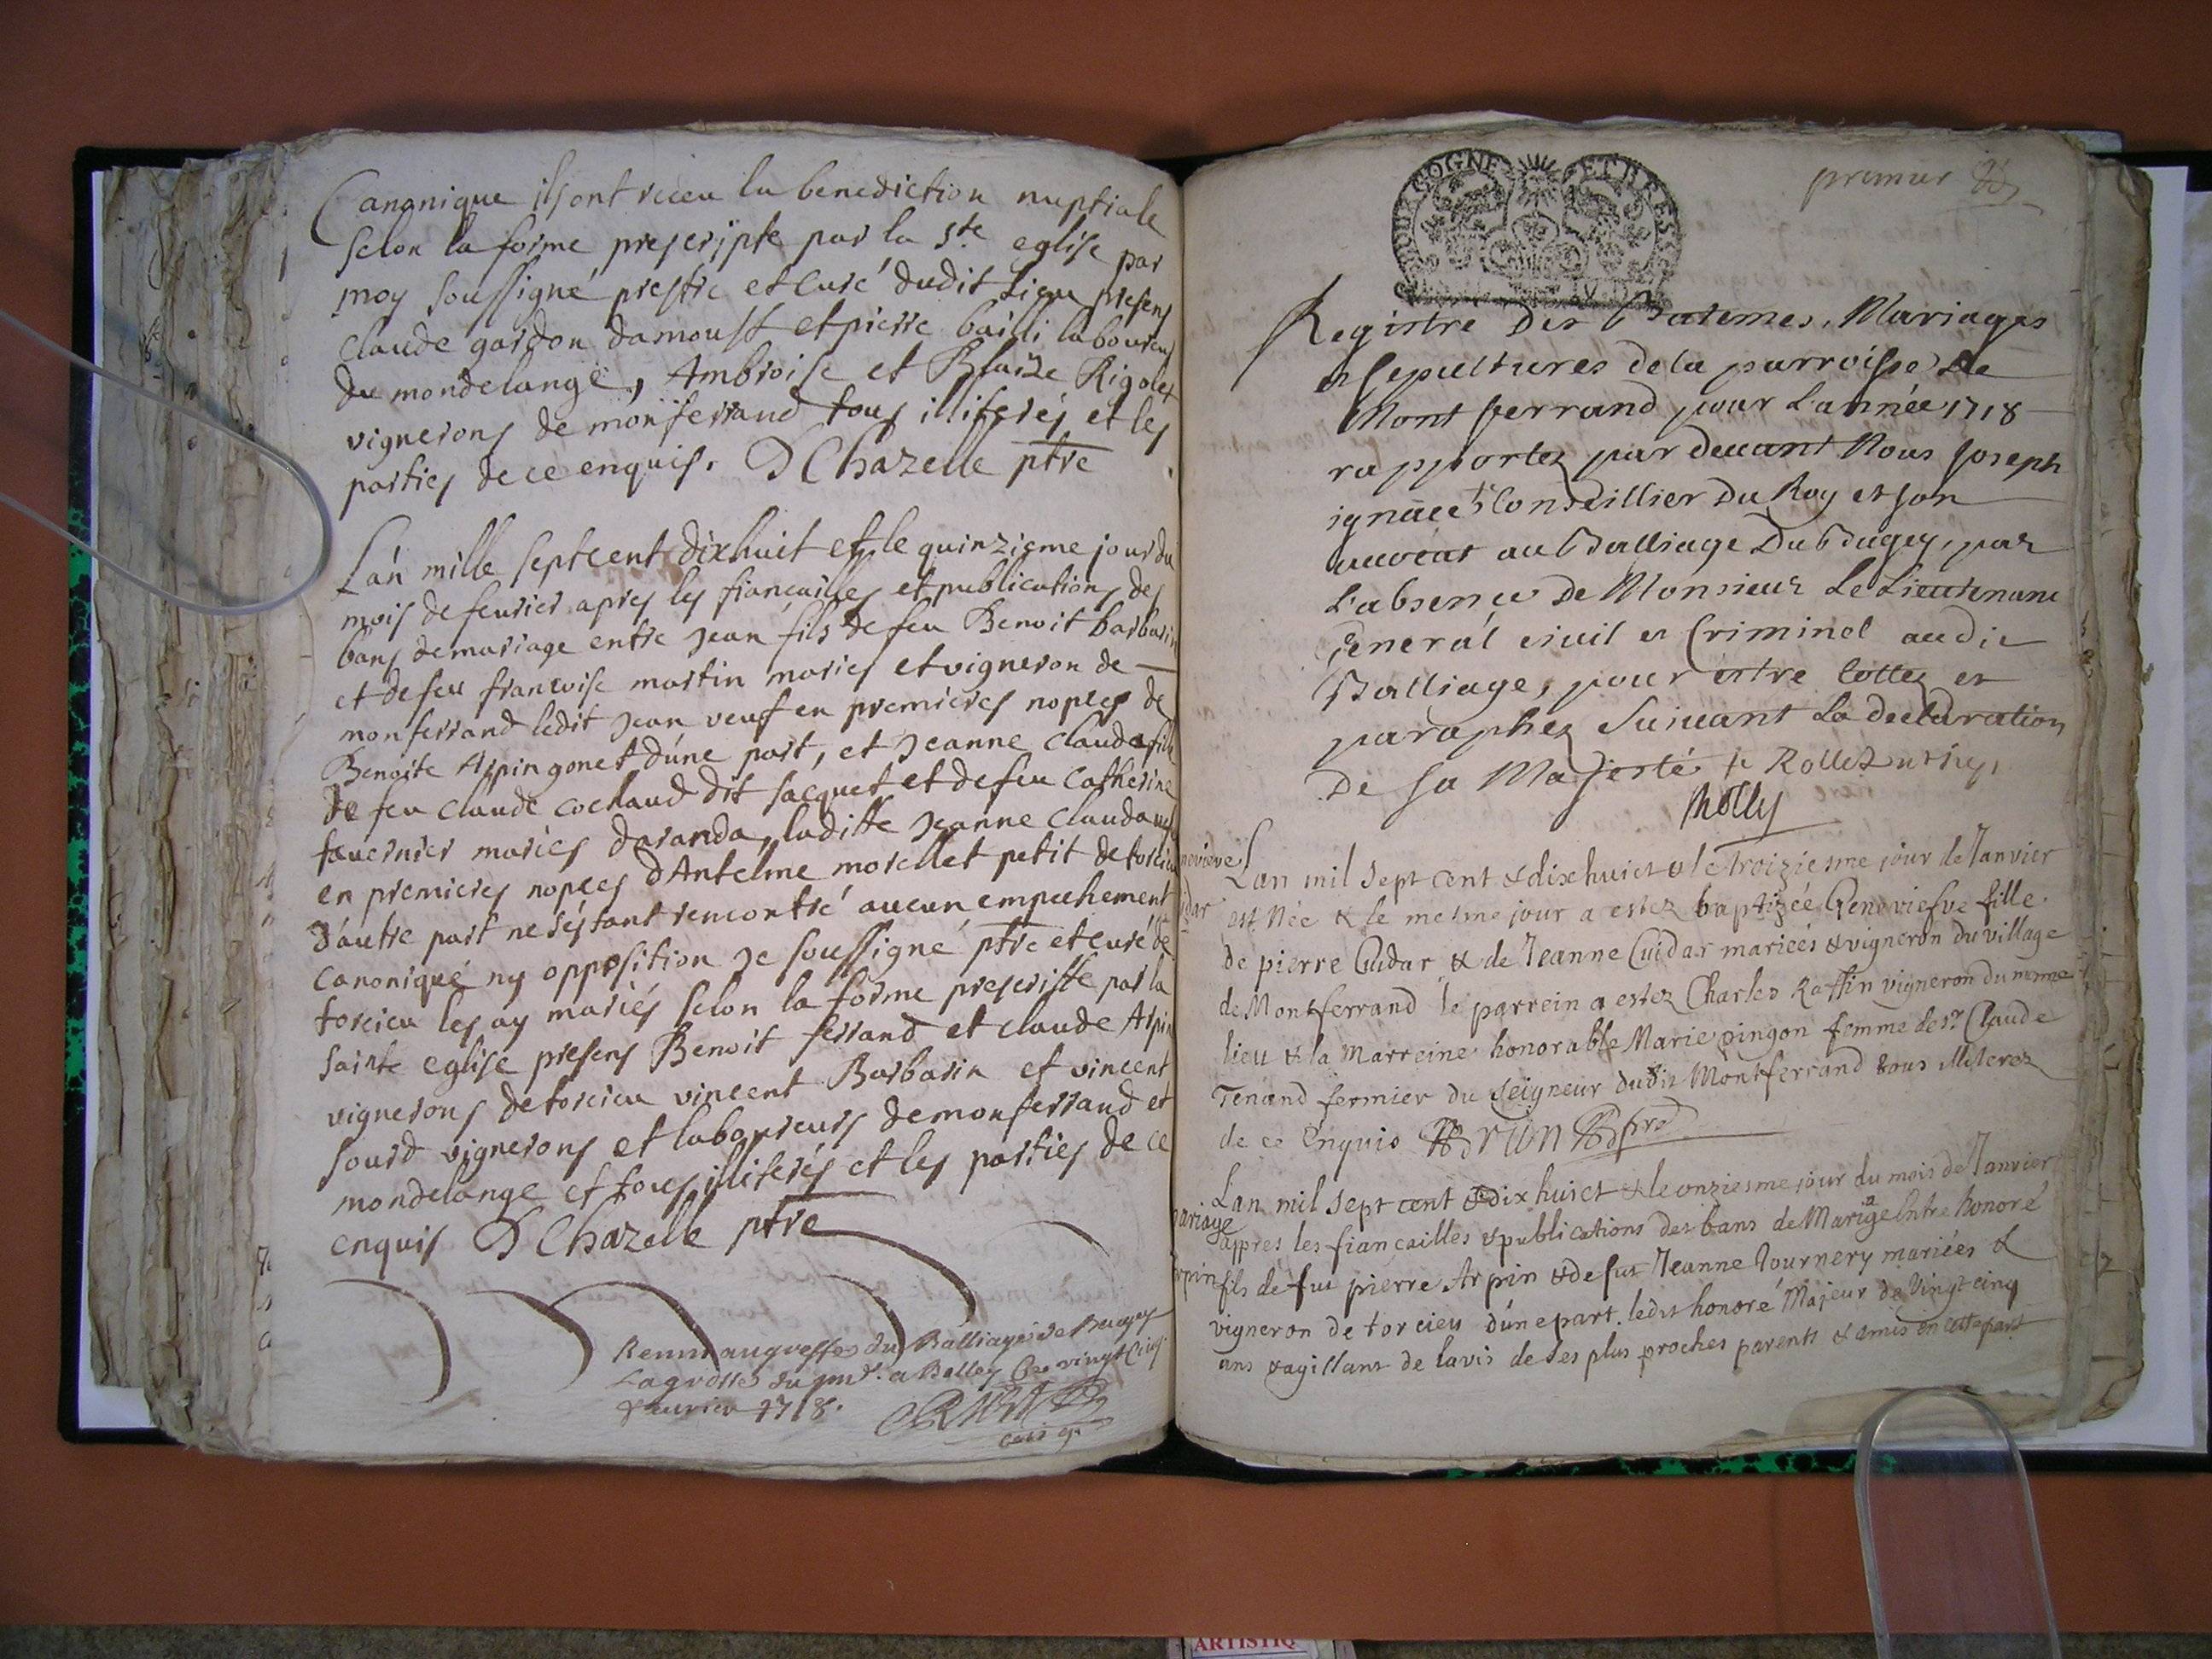 Canonique ils ont receu la benediction nuptiale
selon la forme prescripte par la ste eglise par
moy soussigné prestre et curé dudit lieu presens
claude gardon damoust et pierre bailli laboureurs
du mondelange, Ambroise et Blaize Rigolet
vignerons de monferrand tous illiterés et les
parties de ce enquis. D Chazelle ptre
L'an mille septcent dixhuit et le quinzieme jour du
mois de feurier apres les fiancailles et publications des
bans de mariage entre jean fils de feu Benoit barbarin
et de feu francoise martin mariés et vigneron de
monferrand ledit jean veuf en premieres nopces de
Benoite Arpin gonet d'une part, et jeanne clauda fille
de feu claude cochaud dit jacquet et de feu catherine
tavernier mariés daranda, laditte jeanne claudа veuve
en premieres nopces d'Antelme morellet petit de torcieu
d'autre part ne s'estant rencontré aucun empechement
canonique ny opposition je soussigné ptre et curé de
torcieu les ay mariés selon la forme prescritte par la
sainte eglise presens Benoit ferrand et claude Arpin
vignerons de torcieu vincent Barbarin et vincent
sourd vignerons et laboureurs de monferrand et
mondelange et tous illiterés et les parties de ce
enquis D Chazelle ptre
Remis au greffe du Balliage de Beugey
La grosse du pnt. a Belley Ce vingt Cinq
feurier 1718.
premier
GOGNE ET BRESSE
Registre Des Batemes, Mariages
et sepultures de la parroisse de
Mont ferrand pour L'année 1718
rapportez par deuant Nous joseph
ignace Conseillier Du Roy et son
auocat au Balliage Du Bugey, par
L'absence De Monsieur Le Lieutenant
general ciuil et Criminel audit
Balliage, pour estre Cottez et
paraphez Suiuant La declaration
De Sa Majesté
Lan mil sept cent & dixhuict & le troiziesme jour de Janvier
est Née & le mesme jour a estez baptizée Geneviefve fille
de pierre Cuidar & de Jeanne Cuidar mariées & vigneron du village
de Montferrand le parrein a estez Charles Raffin vigneron du mesme
lieu & la Marreine honorable Marie pingon femme de sr Claude
Tenand fermier du seigneur dudit Montferrand tous illiterez
de ce Enquis Brun
mariage
arpin
Lan mil sept cent & dix huict & le onziesme jour du mois de Janvier
appres les fiancailles & publications des bans de Mariage Entre honoré
fils de fut pierre Arpin & de fut Jeanne Journery mariées &
vigneron de torcieu d'une part. ledit honoré Majeur de vingt cinq
ans & agissant de lavis de ses plus proches parents & amis en cette part
ARTISTIQ